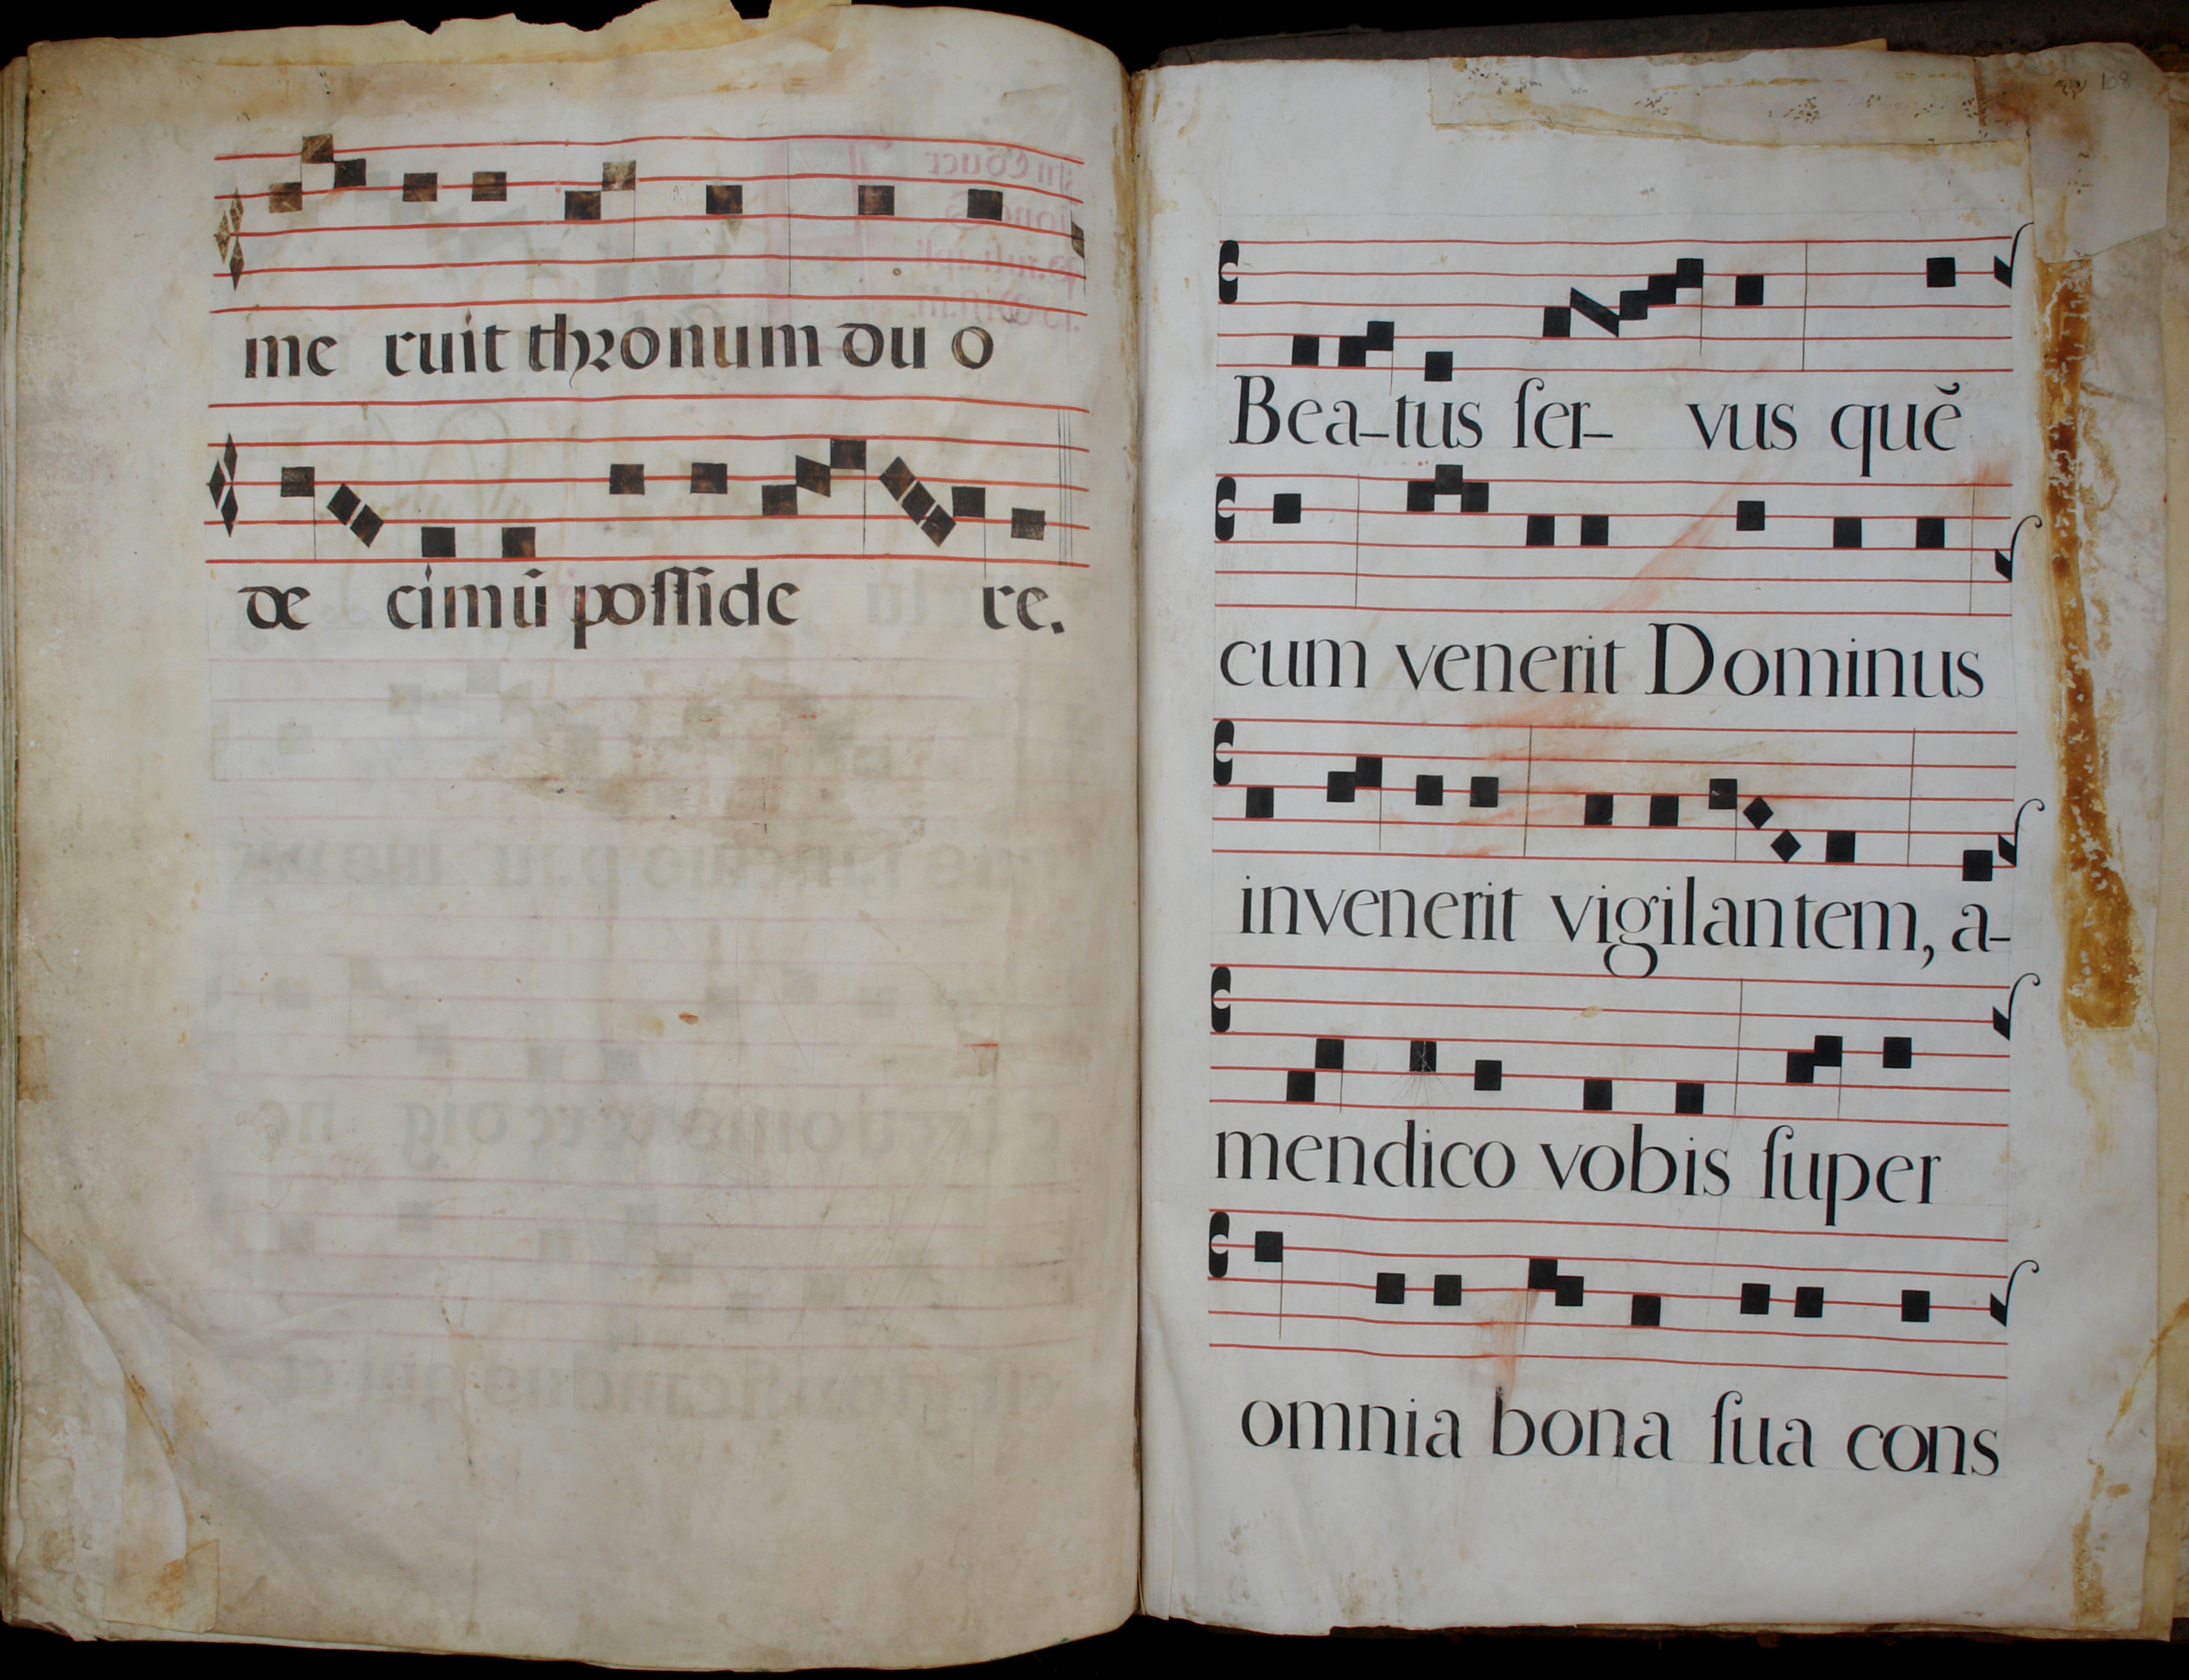 me ruit thronum du o
de cimū poſſide re.
108
Bea-tus ſer- vus quẽ
cum venerit Dominus
invenerit vigilantem, a-
mendico vobis ſuper
omnia bona ſua cons